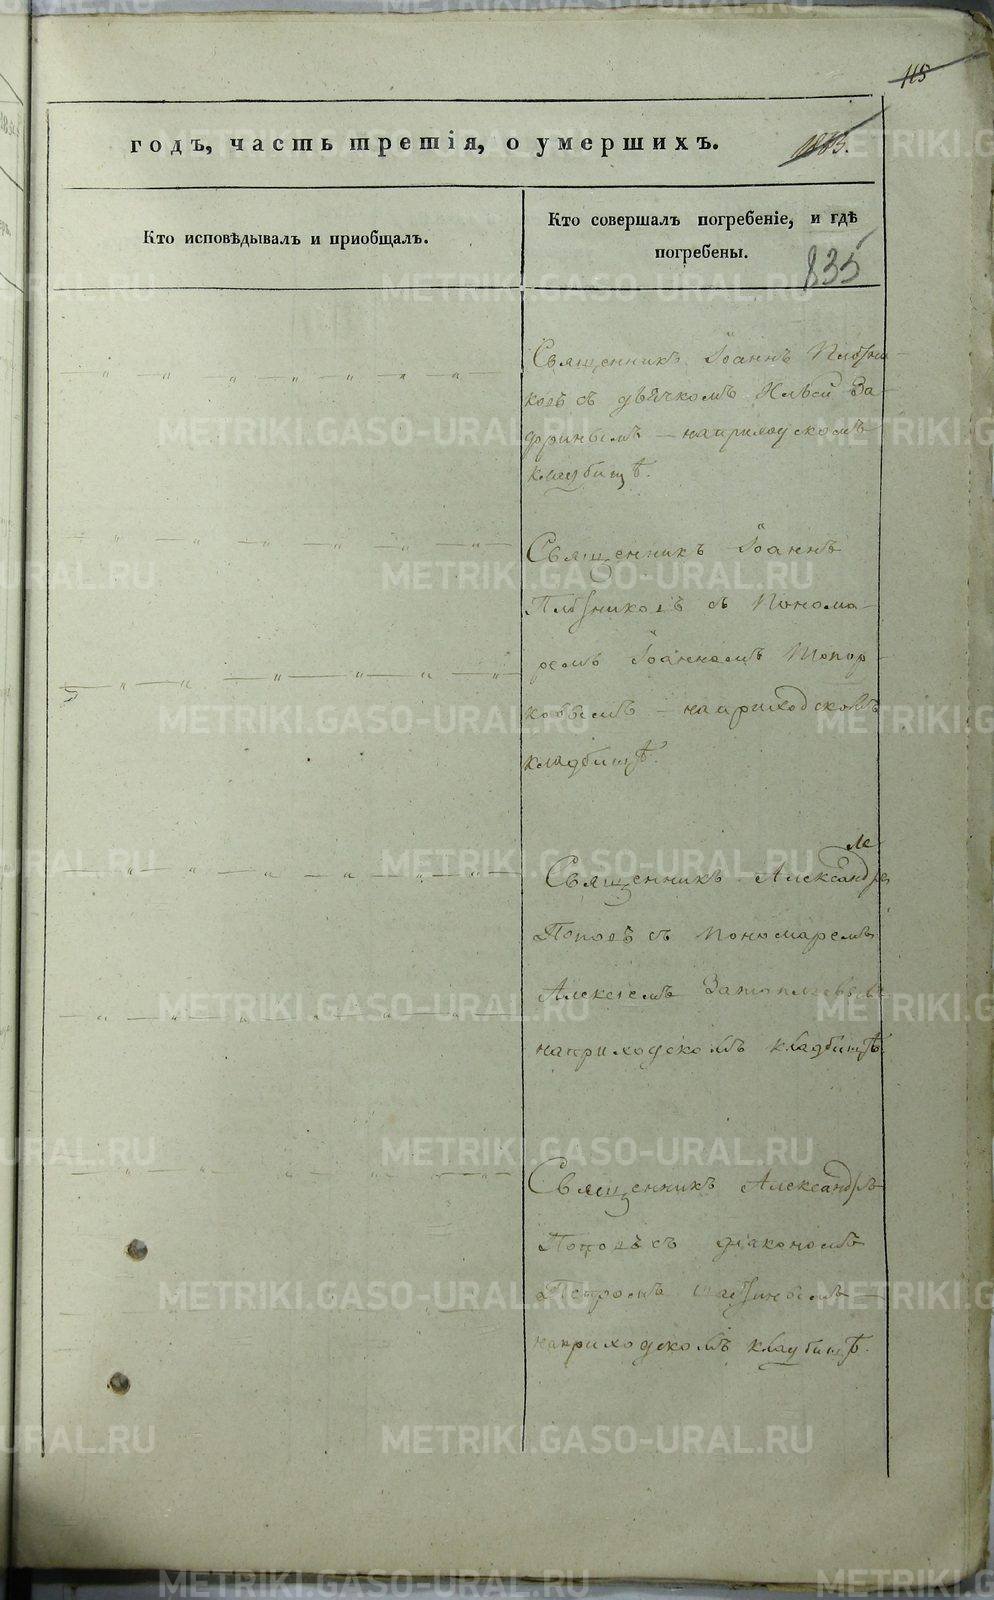 115
годъ, часть третія, о умершихъ.
Кто исповѣдывалъ и приобщалъ.
Кто совершалъ погребеніе, и гдѣ
погребены.
835
Священникъ Іоаннъ Плотни-
ковъ съ дьячкомъ Ильей За-
- на приходскомъ
кладбищѣ.
Священникъ Іоаннъ
Плотниковъ съ Понома-
ремъ Іоанномъ Топор-
ковымъ - на приходскомъ
кладбищѣ.
Священникъ Александръ
Поповъ съ Пономаремъ
Алексѣемъ
на приходскомъ кладбищѣ.
Священникъ Александръ
Поповъ съ діакономъ
Петромъ
на приходскомъ кладбищѣ.
METRIKI.GASO-URAL.RU